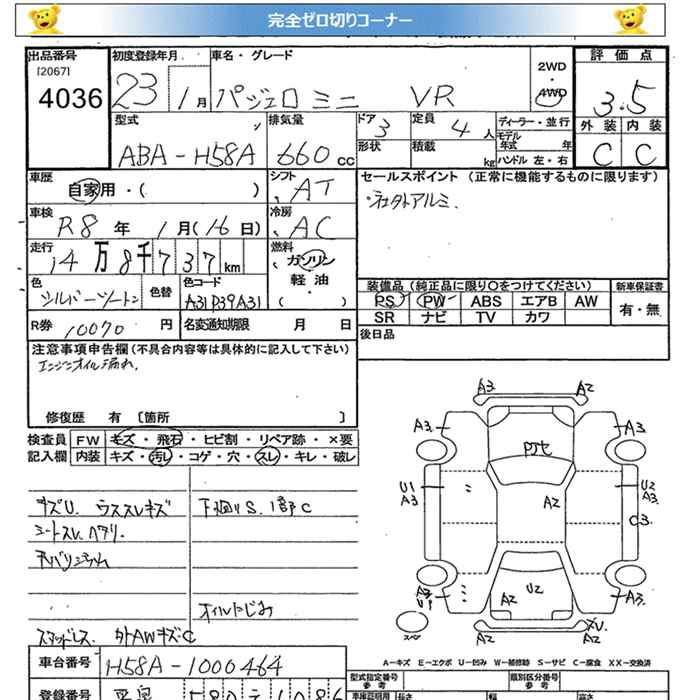 完全ゼロ切りコーナー
出品番号 初度登録年月 車名・グレード 2WD・4WD 評価点
[2067]
4036 23年 1月 パジェロ ミニ VR 3.5
型式 排気量 ドア 定員 ディーラー・並行 外装 内装
ABA-H58A 660cc 3 4人 モデル年式 年 C C
形状 積載 kg ハンドル 左・右
車歴 シフト セールスポイント (正常に機能するものに限ります)
自家用・( ) AT 社外アルミ.
車検 冷房
R8年 1月(16日) AC
走行 燃料
14万8千737km ガソリン
軽油
・( )
色 色替 色コード 装備品(純正品に限り○をつけてください) 新車保証書
シルバーツートン A31P39A31 PS PW ABS エアB AW 有・無
SR ナビ TV カワ
R券 10070円 名変通知期限 月 日 後日品
注意事項申告欄(不具合内容等は具体的に記入して下さい)
エンジンオイル漏れ.
修復歴 有 [箇所 ]
検査員 FW キズ・飛石・ヒビ割・リペア跡・×要
記入欄 内装 キズ・汚レ・コゲ・穴・スレ・キレ・破レ
キズU. ウススレキズ 下廻りS. 1部C
シートスレ ヘタリ.
オイルにじみ
スタッドレス 外AWキズ・C
車台番号 H58A-1000464
登録番号
A3 A2
A3 A3
A2
U1 A3 U2 A3
C3
A3 U1 A2 U2 A2 A3
A2 A2
A－キズ E－エクボ U－凹み W－補修跡 S－サビ C－腐食 XX－交換済
型式指定番号 類別区分番号
参考 参考
車庫証明用 長さ 幅 高さ